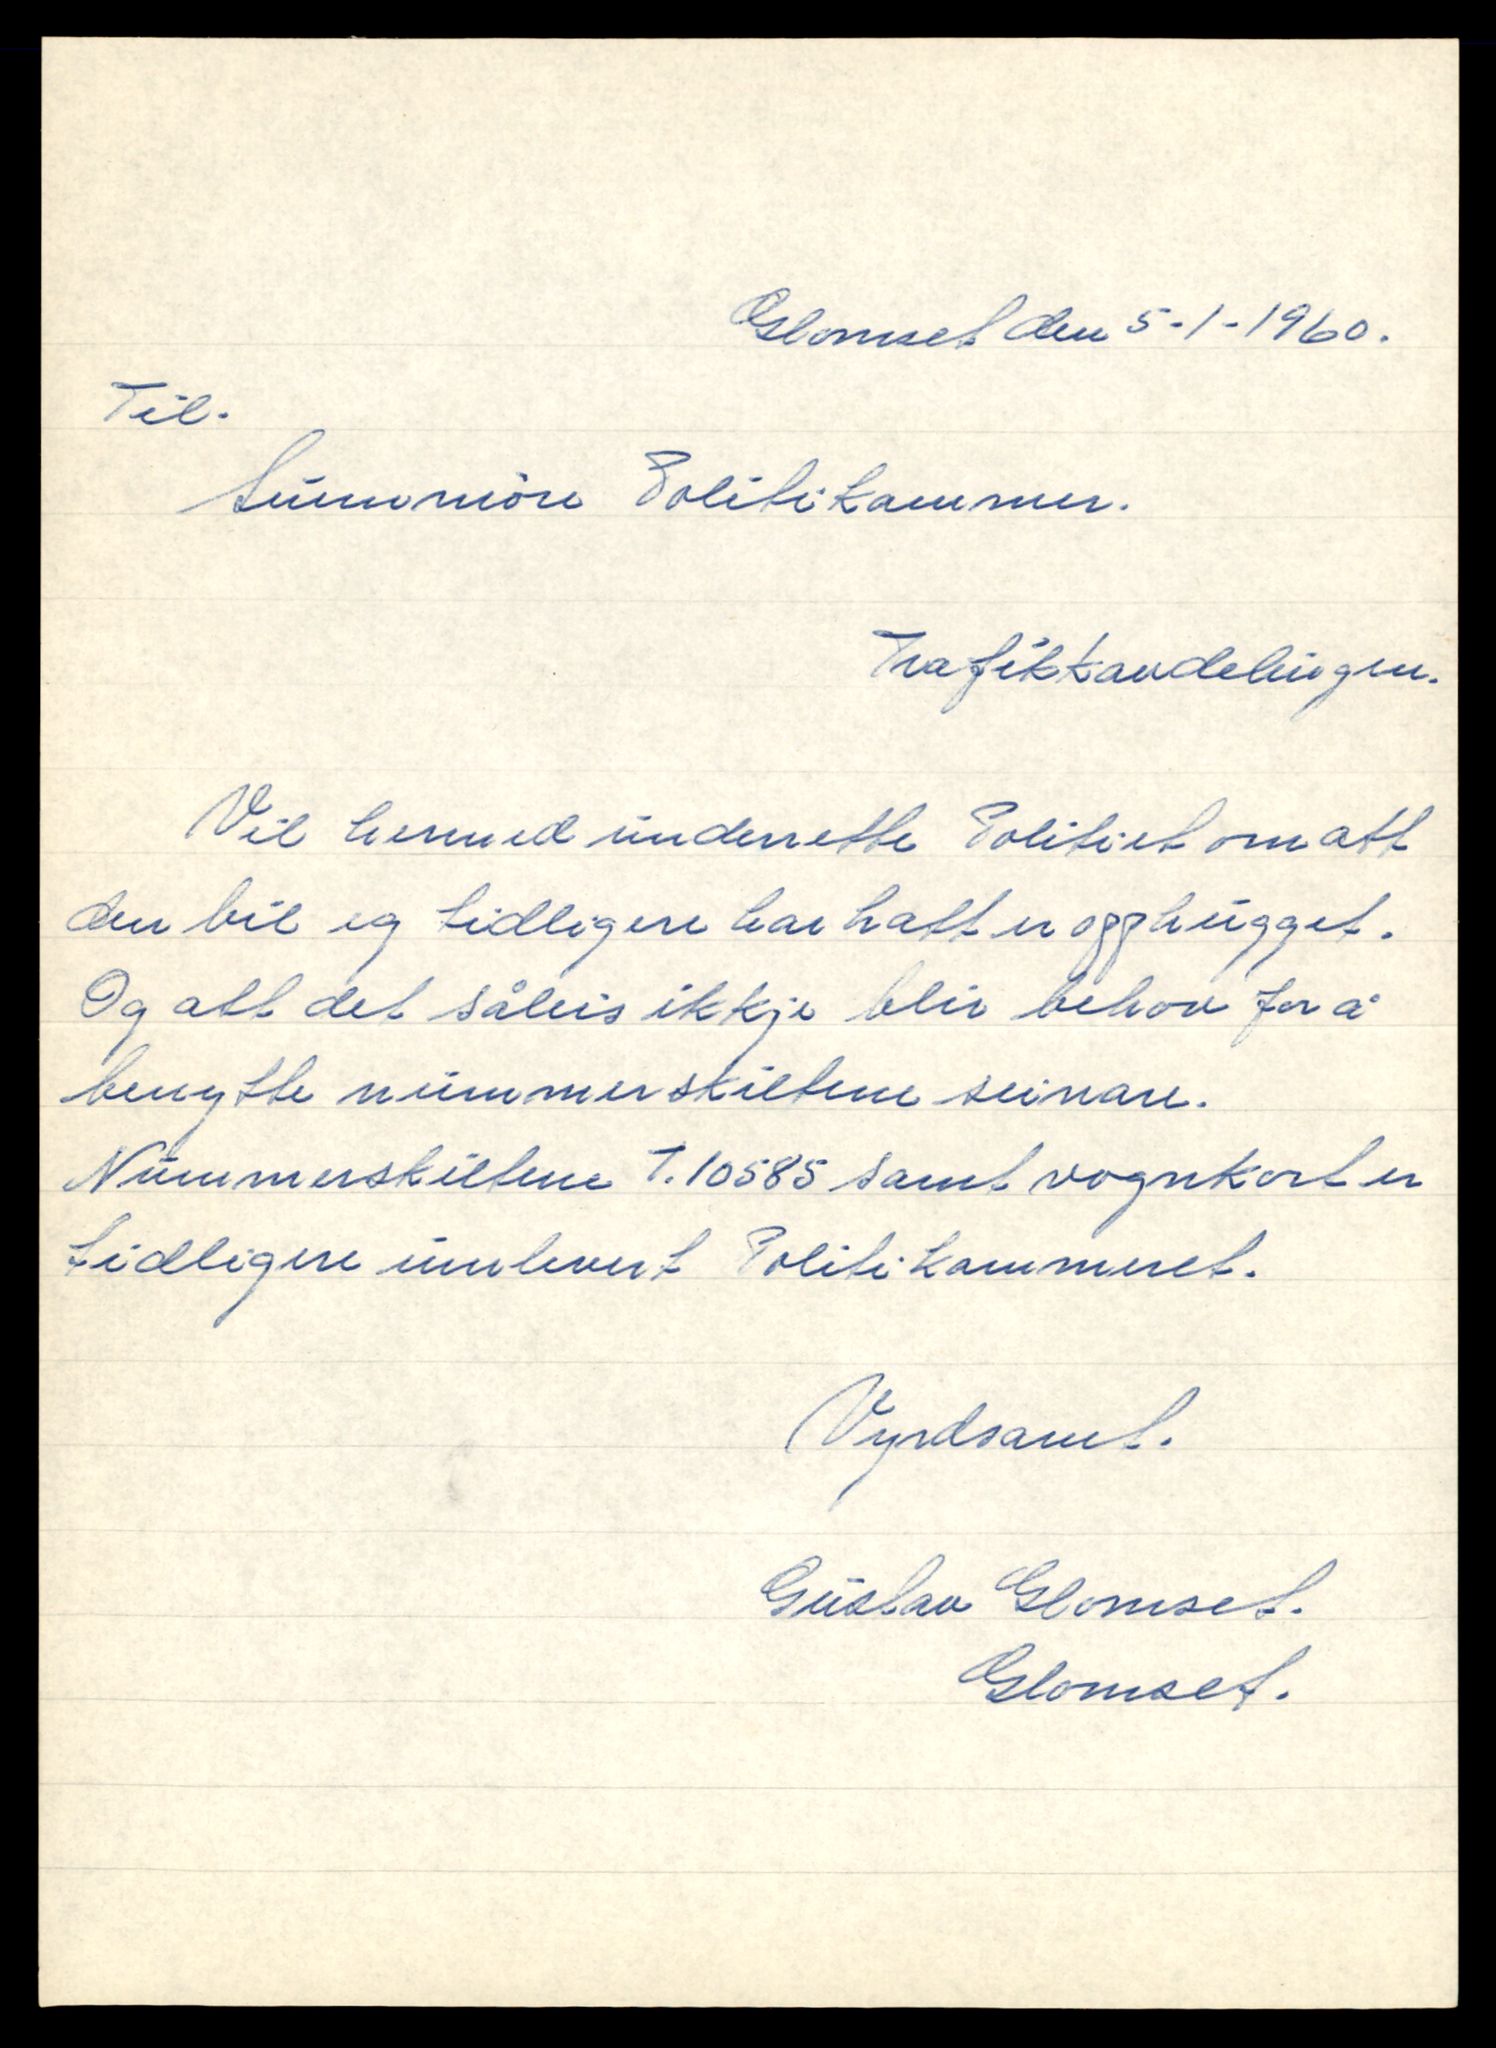 Glomset den 5-1-1960.
Til.
Sunnmöre Politikammer.
Trafikkavdelingen.
Vil hermed underrette Politiet om att
den bil eg tidligere har hatt er opphugget.
Og att det såleis ikkje blir behov for å
benytte nummerskiltene seinare.
Nummerskiltene T.10585 samt vognkort er
tidligere innlevert Politikammeret.
Vyrdsamt.
Gustav Glomset.
Glomset.